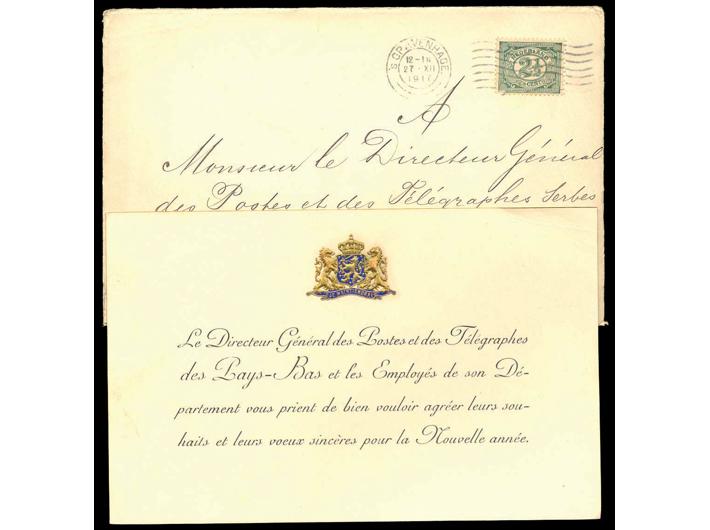 S GRAVENHAGE
12-1N
27·XII
1917
NEDERLAND
2½
CENT
A
Monsieur le Directeur Général
des Postes et des Télégraphes Serbes
Le Directeur Général des Postes et des Télégraphes
des Pays-Bas et les Employés de son Dé-
partement vous prient de bien vouloir agréer leurs sou-
haits et leurs voeux sincères pour la Nouvelle année.